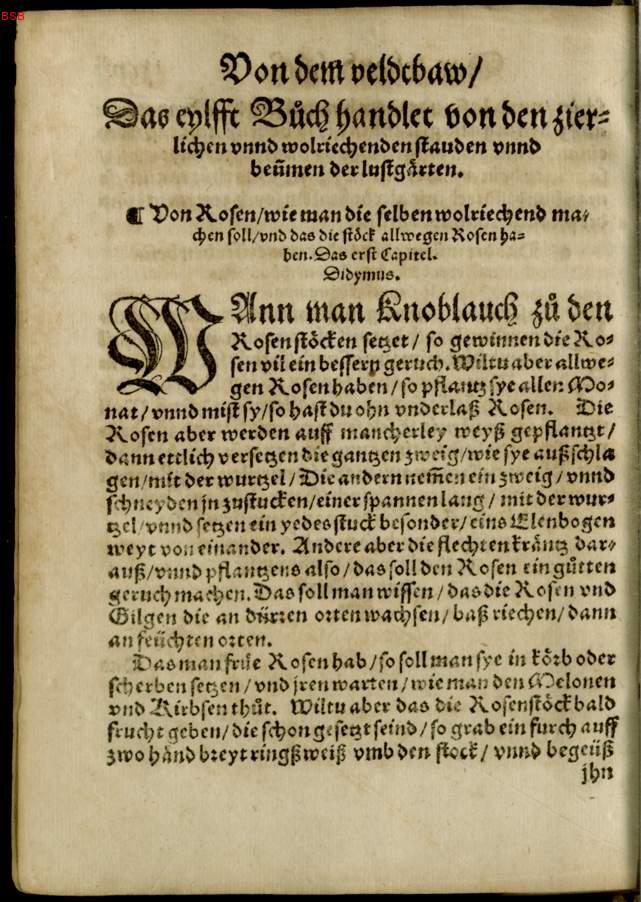 BSB
Von dem veldtbaw/
Das eylfft Bůch handlet von den zier⸗
lichen vnnd wolriechenden stauden vnnd
beümen der lustgärten.
¶ Von Rosen/wie man die selben wolriechend ma⸗
chen soll/vnd das die stöck allwegen Rosen ha⸗
ben. Das erst Capitel.
Didymus.
WAnn man Knoblauch zů den
Rosenstöcken setzet/ so gewinnen die Ro⸗
sen vil ein bessern geruch. Wiltu aber allwe⸗
gen Rosen haben/so pflantz sye allen Mo⸗
nat/vnnd mist sy/so hast du ohn vnderlaß Rosen. Die
Rosen aber werden auff mancherley weyß gepflantzt/
dann ettlich versetzen die gantzen zweig/wie sye außschla
gen/mit der wurtzel/Die andern nem̃en ein zweig/vnnd
schneyden jn zustucken/einer spannen lang/ mit der wur⸗
tzel/vnnd setzen ein yedes stuck besonder/eins Elenbogen
weyt von einander. Andere aber die flechten kräntz dar⸗
auß/vnnd pflantzens also/das soll den Rosen ein gůtten
geruch machen. Das soll man wissen/das die Rosen vnd
Gilgen die an dürren orten wachsen/baß riechen/dann
an feüchten orten.
Das man früe Rosen hab/so soll man sye in körb oder
scherben setzen/vnd jren warten/wie man den Melonen
vnd Kirbsen thůt. Wiltu aber das die Rosenstöck bald
frucht geben/die schon gesetzt seind/so grab ein furch auff
zwo händ breyt ringßweiß vmb den stock/ vnnd begeüß
jhn